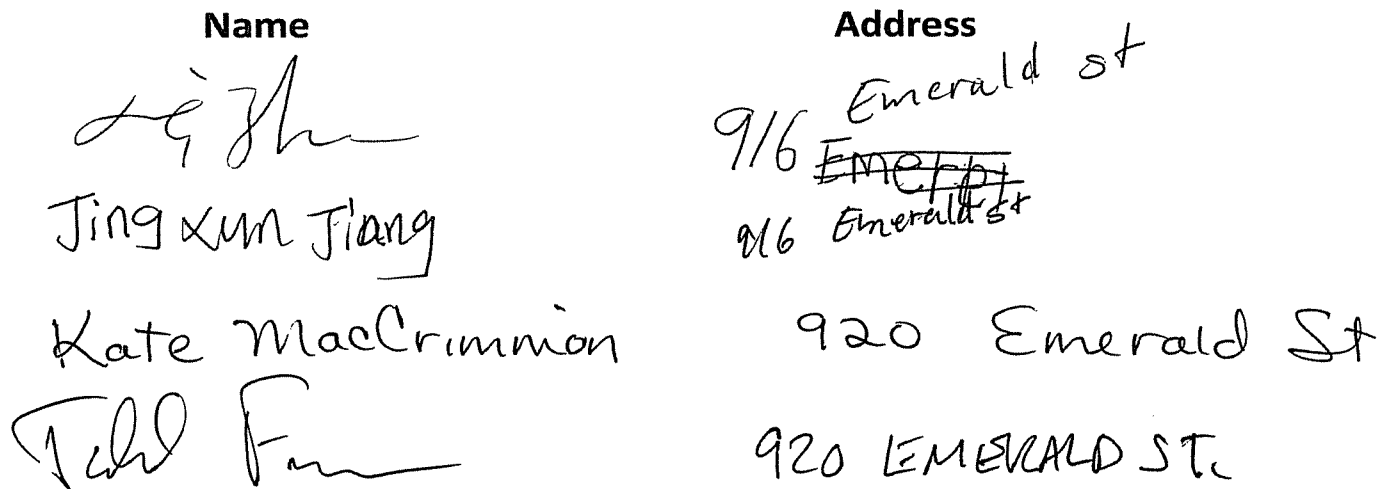 Name Address
916 Emerald st
Jing Xun Jiang 916 Emerald st
Kate MacCrimmon 920 Emerald St
920 EMERALD ST.